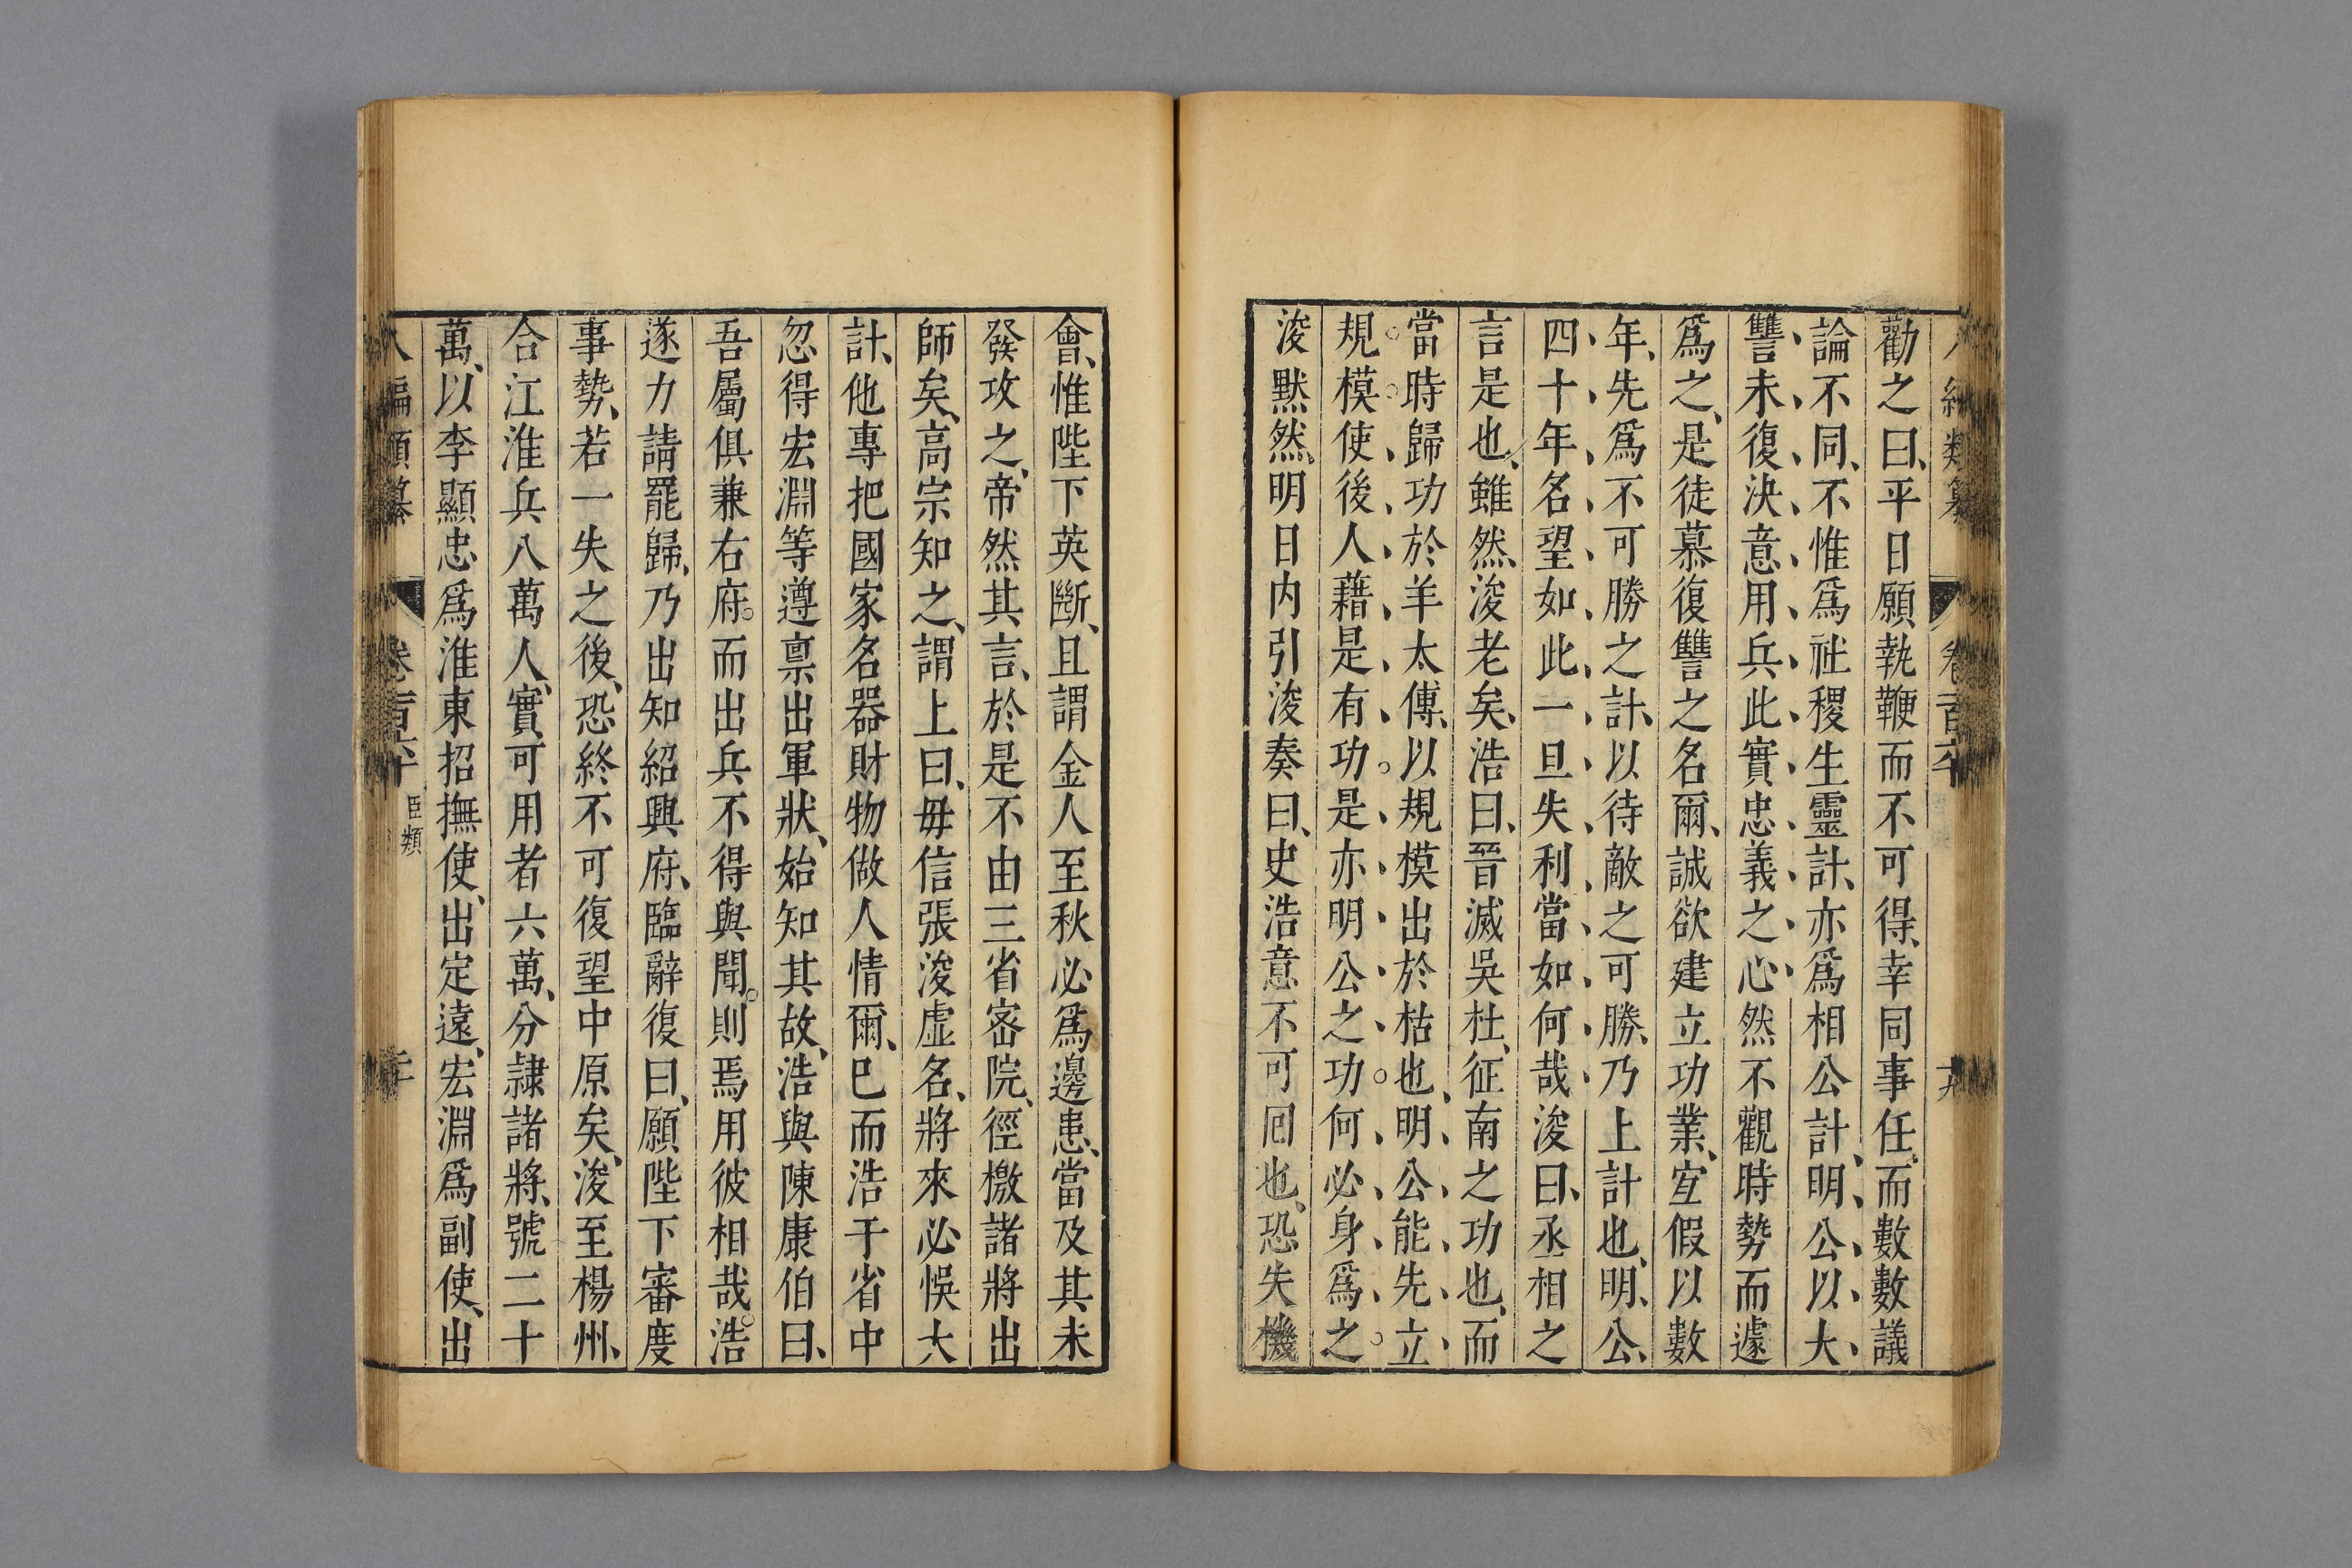 類纂
勸之曰、平日願執鞭而不可得、幸同事任、而數數議
論不同、不惟爲社稷生靈計、亦爲相公計、明公以大
讐未復決意用兵此實忠義之心然不觀時勢而遽
爲之、是徒慕復讐之名爾、誠欲建立功業、宜假以數
年、先爲不可勝之計、以待敵之可勝、乃上計也、明公
四十年名望如此一旦失利當如何哉浚曰、丞相之
言是也、雖然、浚老矣、浩曰、晉滅吳杜、征南之功也、而
當時歸功於羊太傅、以規模出於枯也、明公能先立
規模使後人藉是有功是亦明公之功何必身爲之
浚默然。明日内引浚奏曰、史浩意不可囘也、恐失機
會、惟陛下英斷、且謂金人至秋必爲邊患、當及其未
發攻之、帝然其言、於是不由三省密院、徑檄諸將出
師矣、高宗知之、謂上曰、毋信張浚虛名、將來必悞大
計、他專把國家名器財物做人情爾、巳而浩于省中
忽得宏淵等遵禀出軍狀、始知其故、浩與陳康伯曰、
吾屬俱兼右府。而出兵不得與聞。則焉用彼相哉。浩
遂力請罷歸、乃出知紹興府、臨辭復曰、願陛下審度
事勢、若一失之後、恐終不可復望中原矣、浚至楊州、
合江淮兵八萬人、實可用者六萬、分隷諸將、號二十
萬、以李顯忠爲淮東招撫使、出定遠、宏淵爲副使、出
編類纂 卷 臣類